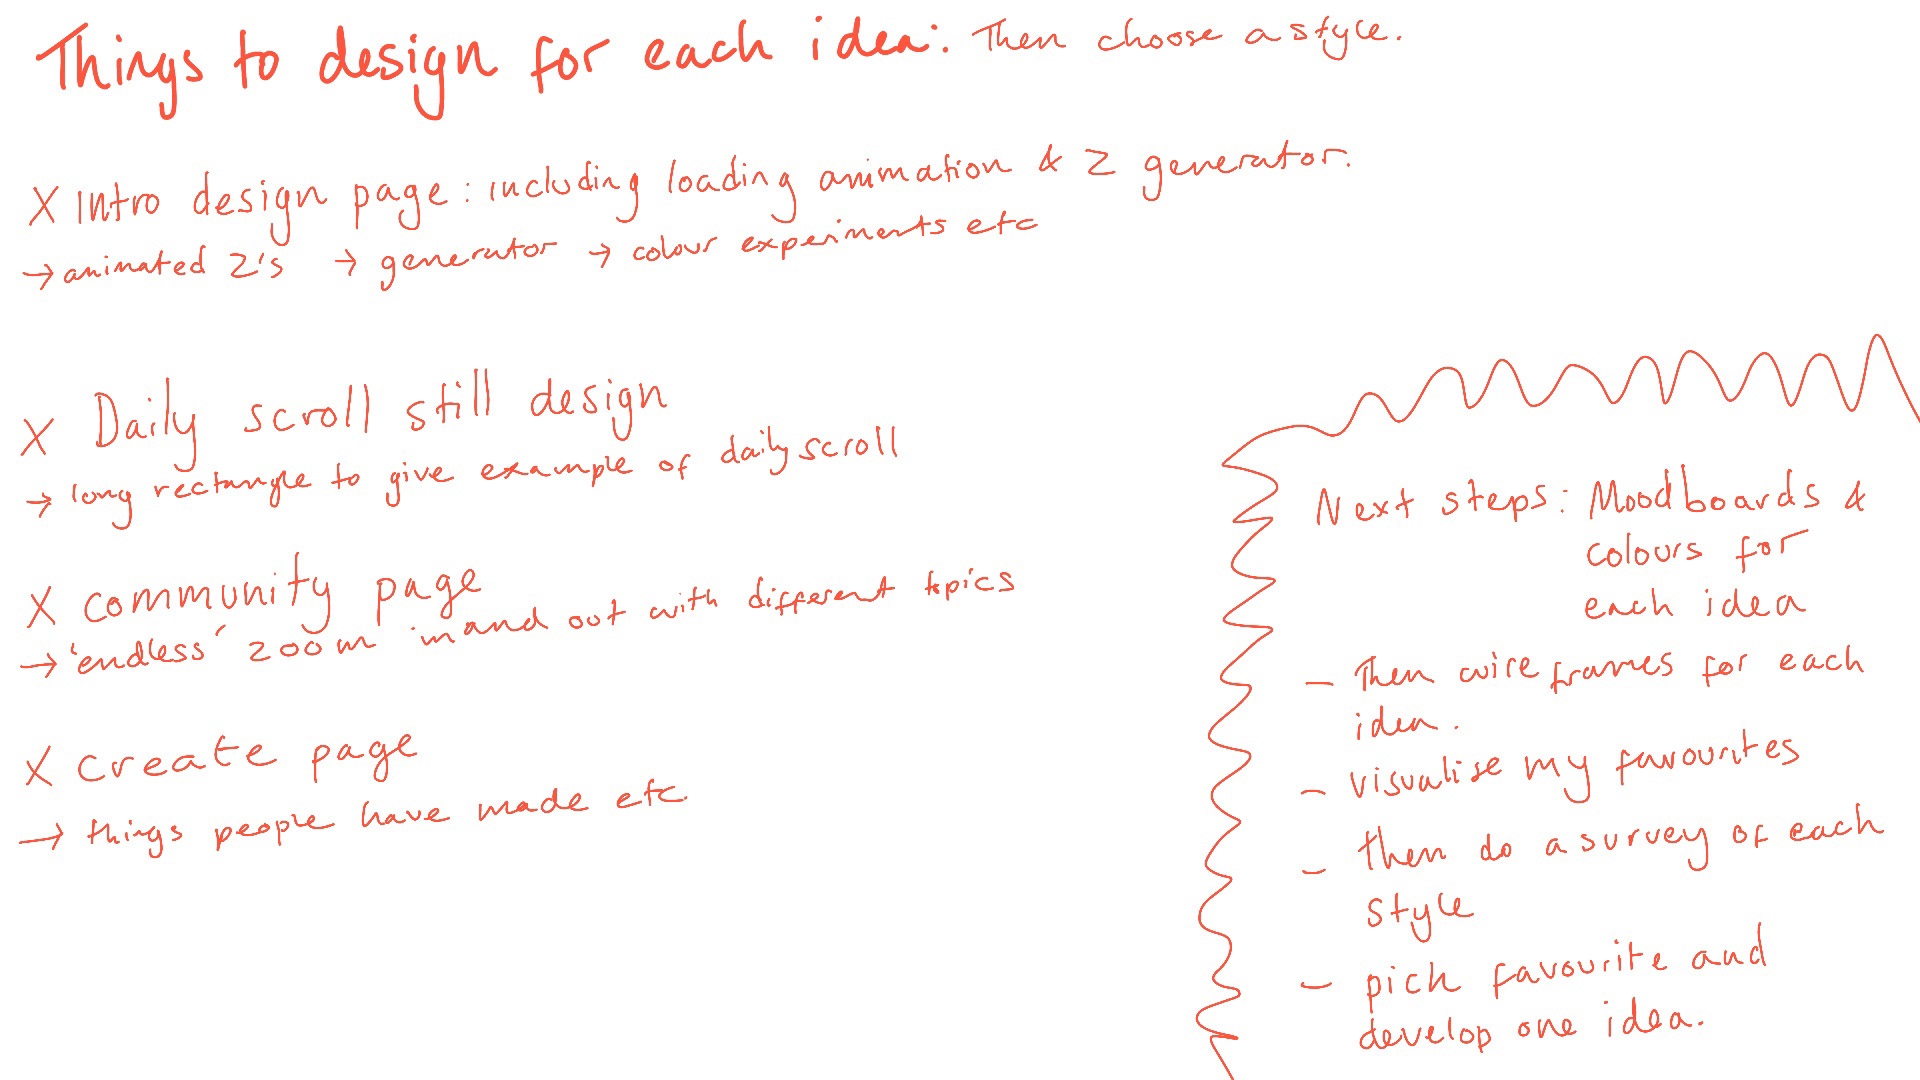 Things to design for each idea: Then choose a style.
X Intro design page: including loading animation & Z generator.
→ animated Z's → generator → colour experiments etc
X Daily scroll still design
→ long rectangle to give example of daily scroll
X community page
→ 'endless' zoom in and out with different topics
X Create page
→ things people have made etc.
Next steps: Moodboards &
colours for
each idea
- Then wireframes for each
idea.
- visualise my favourites
- then do a survey of each
style
- pick favourite and
develop one idea.